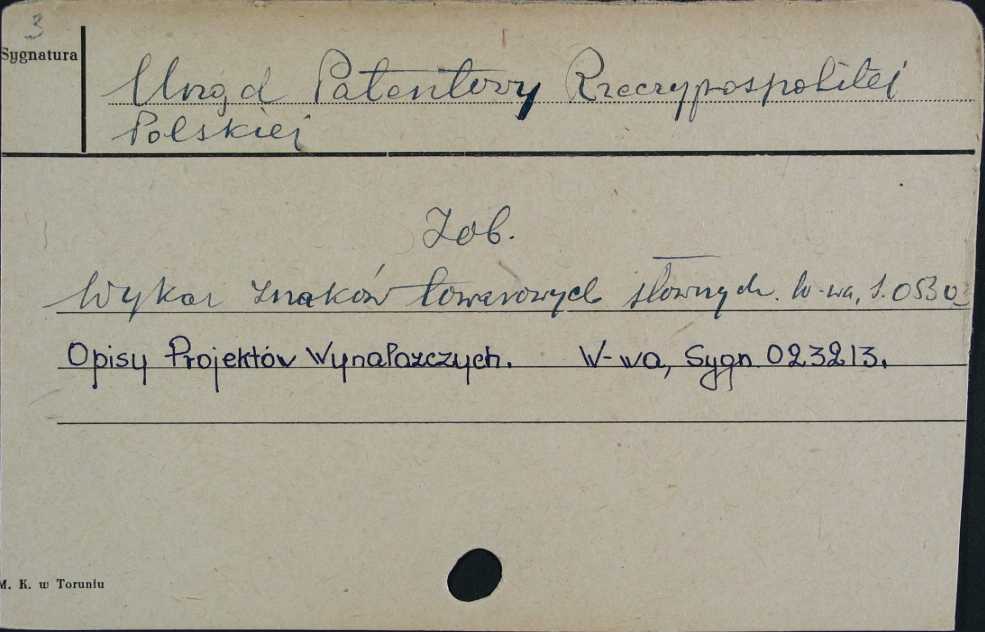 3
Sygnatura
Urząd Patentowy Rzeczypospolitej
Polskiej
Zob.
Wykaz znaków towarowych słownych. W-wa, S.
Opisy Projektów Wynalazczych. W-wa, Sygn. 023213.
M. K. w Toruniu